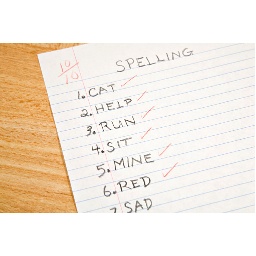 10/10
SPELLING
1. CAT
2. HELP
3. RUN
4. SIT
5. MINE
6. RED
7. SAD